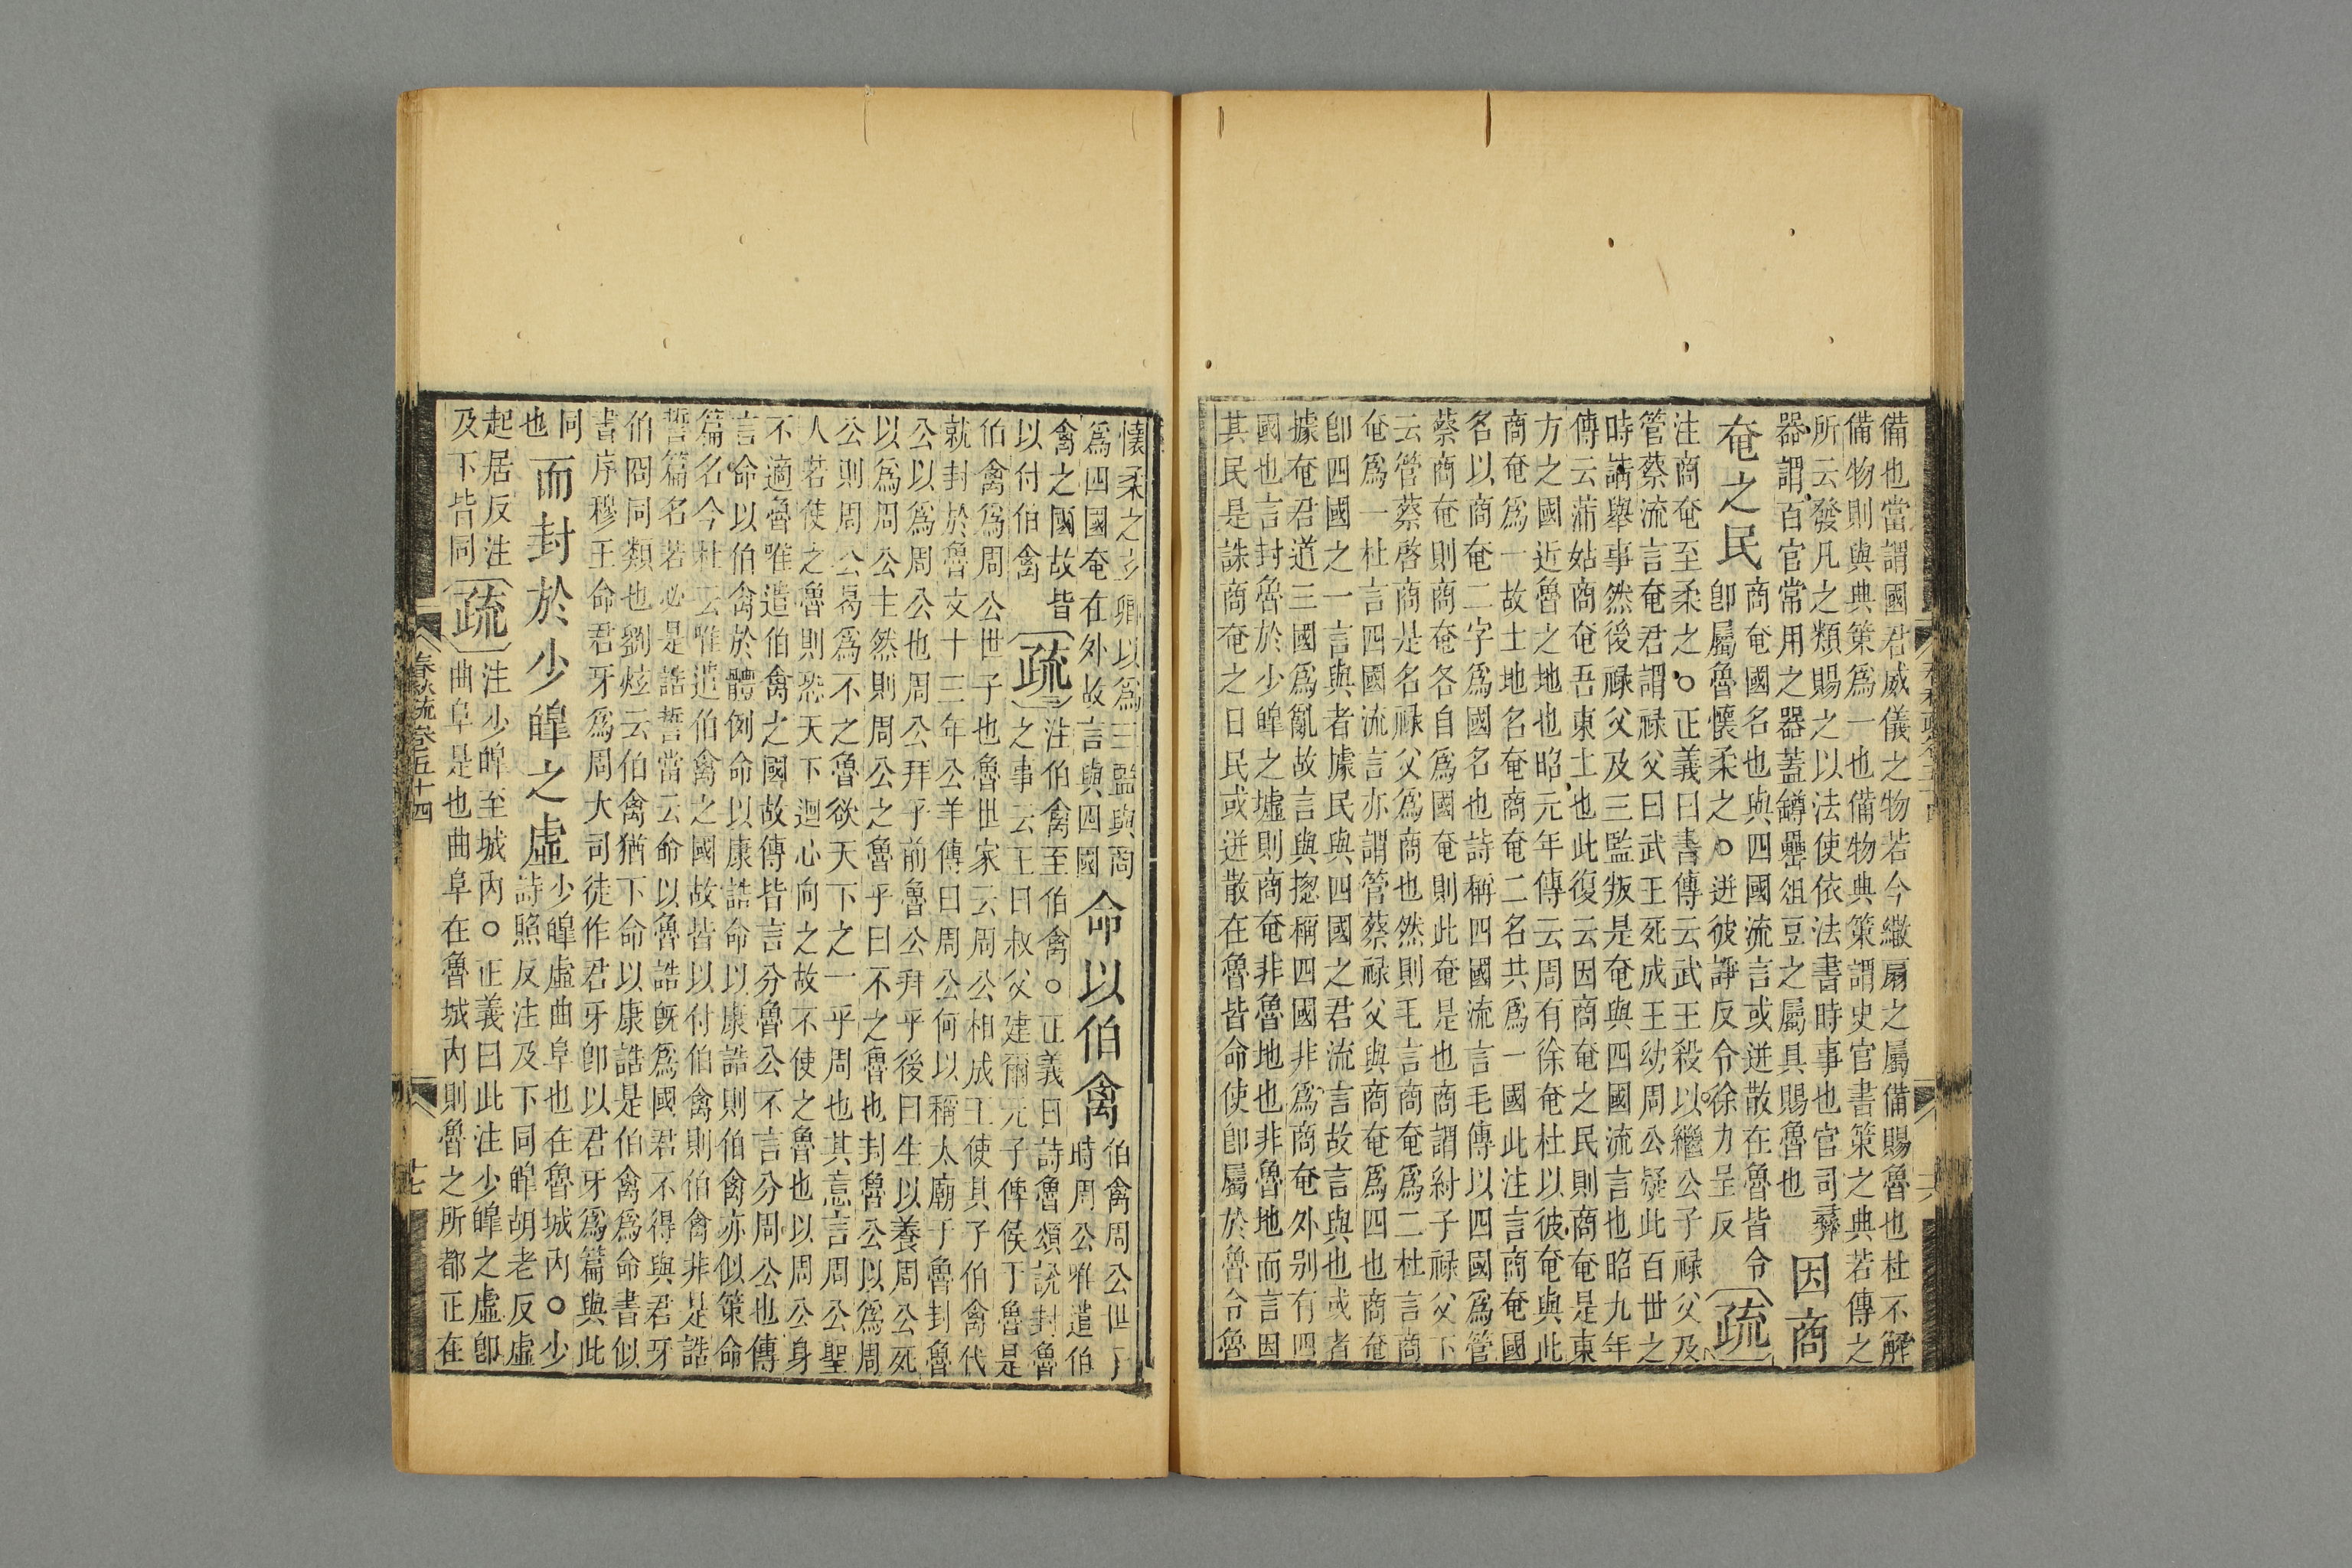 備也當謂國君威儀之物若今繖扇之屬備賜魯也杜不解
備物則與典策爲一也備物典策謂史官書策之典若傳之
所云發凡之類賜之以法使依法書時事也官司彝
器謂百官常用之器蓋罇罍俎豆之屬具賜魯也
因商
奄之民
商奄國名也與四國流言或迸散在魯皆令
卽屬魯懷柔之○迸彼諍反令徐力呈反
疏
注商奄至柔之○正義曰書傳云武王殺以繼公子祿父及
管蔡流言奄君謂祿父曰武王死成王幼周公疑此百世之
時請舉事然後祿父及三監叛是奄與四國流言也昭九年
傳云蒲姑商奄吾東土也此復云因商奄之民則商奄是東
方之國近魯之地也昭元年傳云周有徐奄杜以彼奄與此
商奄爲一故土地名奄商奄二名共爲一國此注言商奄國
名以商奄二字爲國名也詩稱四國流言毛傳以四國爲管
蔡商奄則商奄各自爲國奄則此奄是也商謂紂子祿父下
云管蔡啓商是名祿父爲商也然則毛言商奄爲二杜言商
奄爲一杜言四國流言亦謂管蔡祿父與商奄爲四也商奄
卽四國之一言與者據民與四國之君流言故言與也或者
據奄君道三國爲亂故言與摠稱四國非爲商奄外别有四
國也言封魯於少皥之墟則商奄非魯地也非魯地而言因
其民是誅商奄之日民或迸散在魯皆命使卽屬於魯令魯
懷柔之立卿以爲三監與商
爲四國奄在外故言與四國
命以伯禽
伯禽周公世子
時周公唯遣伯
禽之國故皆
以付伯禽
疏
注伯禽至伯禽○正義曰詩魯頌說封魯
之事云王曰叔父建爾元子俾侯于魯是
伯禽爲周公世子也魯世家云周公相成王使其子伯禽代
就封於魯文十三年公羊傳曰周公何以稱太廟于魯封魯
公以爲周公也周公拜乎前魯公拜乎後曰生以養周公死
以爲周公主然則周公之魯乎曰不之魯也封魯公以爲周
公則周公曷爲不之魯欲天下之一乎周也其意言周公聖
人若使之魯則恐天下迴心向之故不使之魯也以周公身
不適魯唯遣伯禽之國故傳皆言分魯公不言分周公也傳
言命以伯禽於體例命以康誥命以康誥則伯禽亦似策命
篇名今杜云唯遣伯禽之國故皆以付伯禽則伯禽非是誥
誓篇名若必是誥誓當云命以魯誥旣爲國君不得與君牙
伯冏同類也劉炫云伯禽猶下命以康誥是伯禽爲命書似
書序穆王命君牙爲周大司徒作君牙卽以君牙爲篇與此
同
也
而封於少皥之虛
少皥虛曲阜也在魯城內○少
詩照反注及下同皥胡老反虛
起居反注
及下皆同
疏
注少皥至城內○正義曰此注少皥之虛卽
曲阜是也曲阜在魯城內則魯之所都正在
春秋疏卷五十四